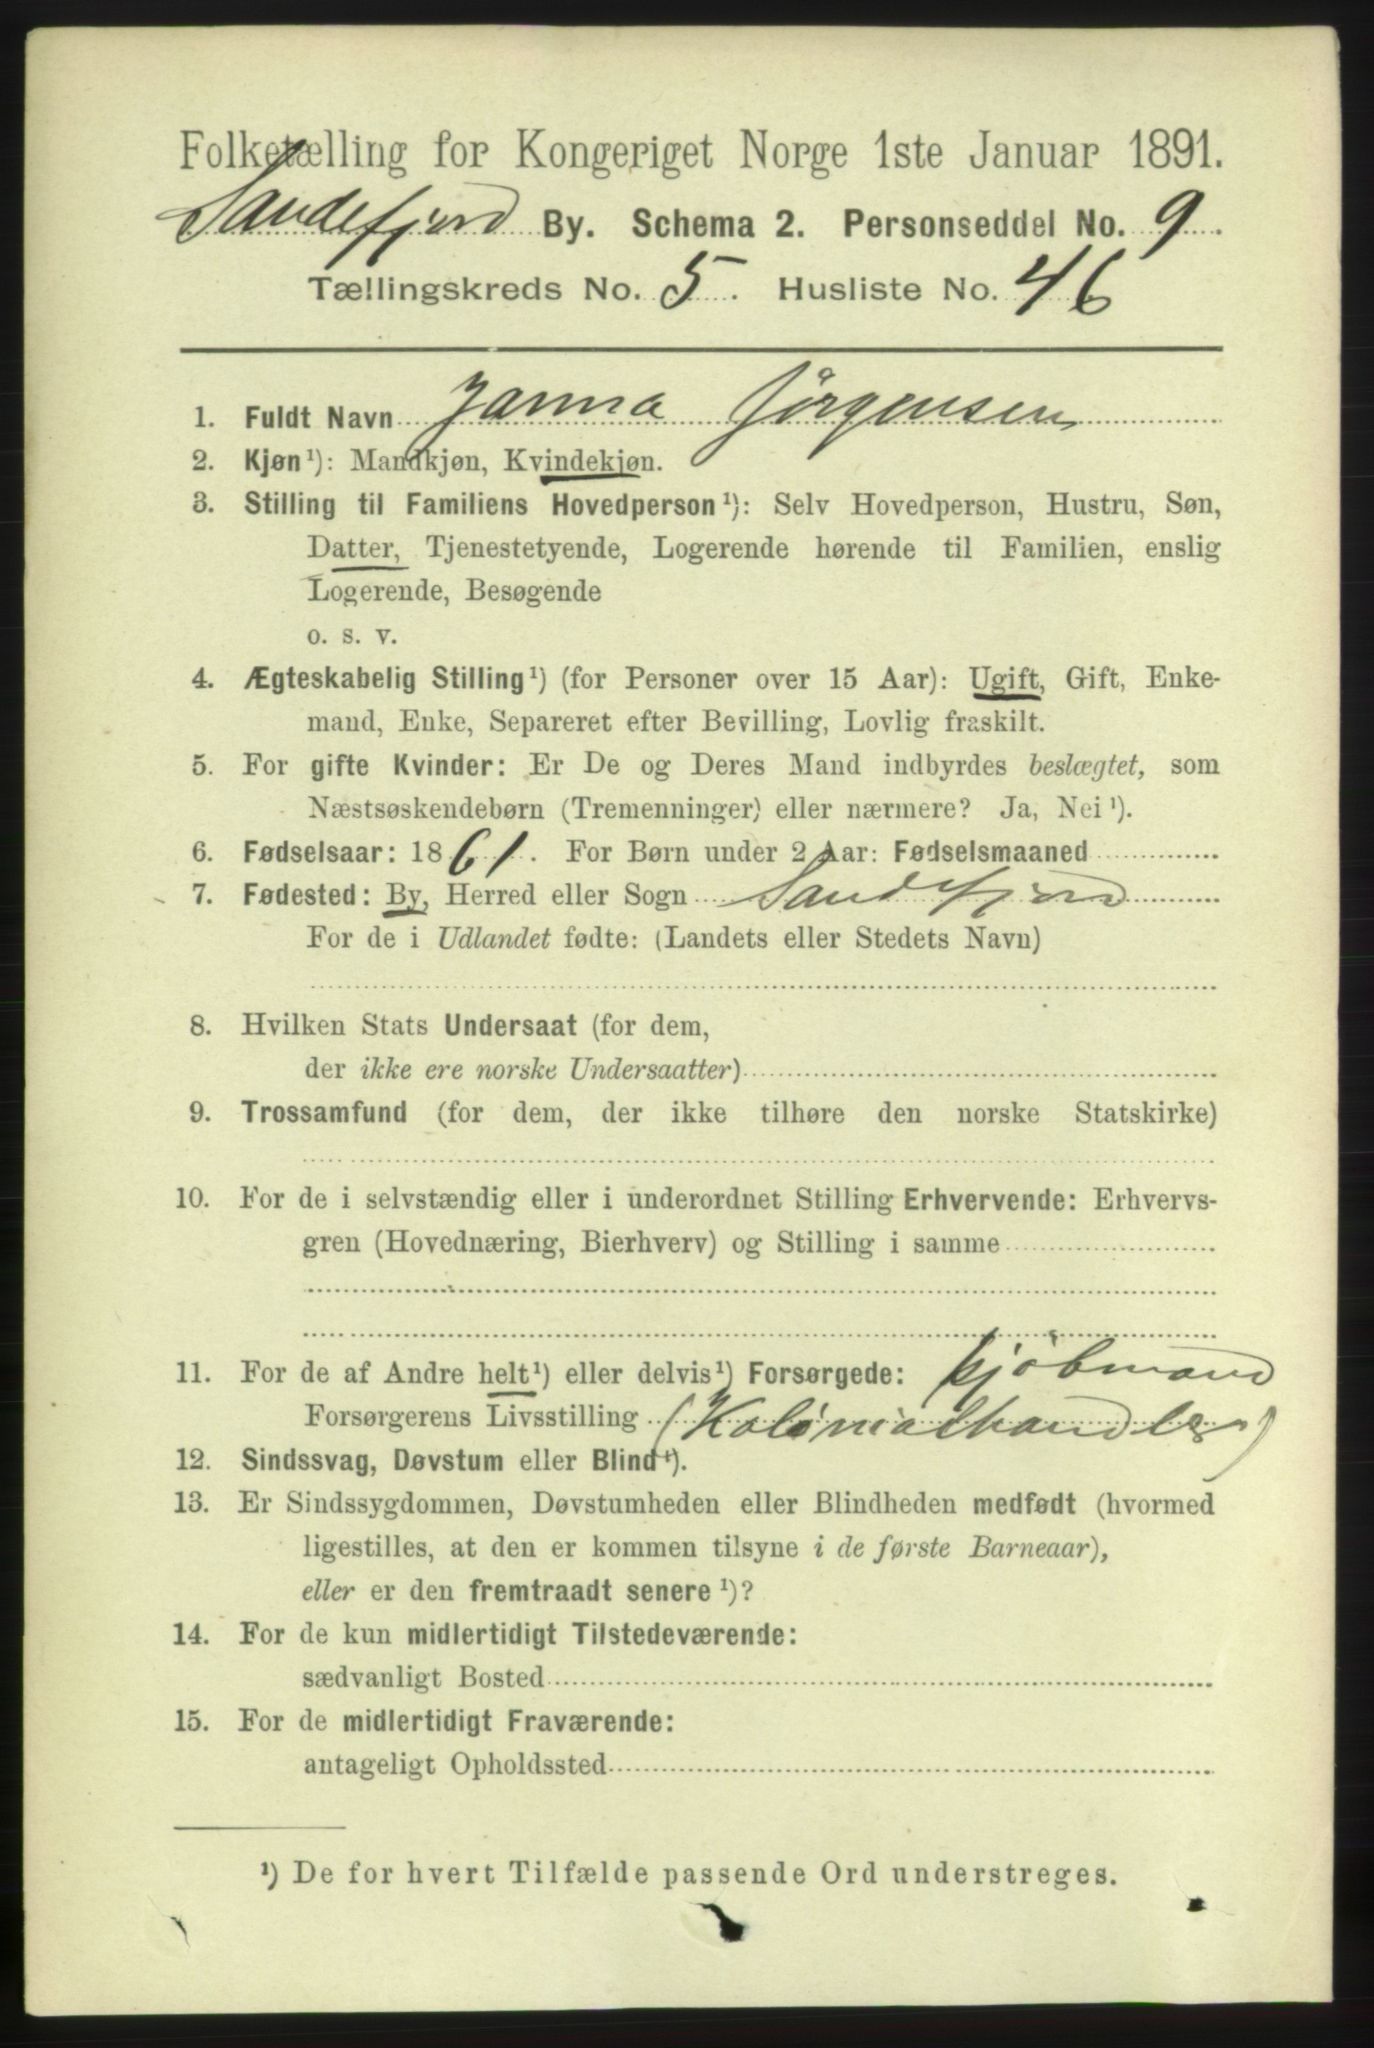 Folketælling for Kongeriget Norge 1ste Januar 1891.
Sandefjord By. Schema 2. Personseddel No. 9.
Tællingskreds No. 5. Husliste No. 46
1. Fuldt Navn Janna Jørgensen
2. Kjøn¹): Mandkjøn, Kvindekjøn.
3. Stilling til Familiens Hovedperson¹): Selv Hovedperson, Hustru, Søn,
Datter, Tjenestetyende, Logerende hørende til Familien, enslig
Logerende, Besøgende
o. s. v.
4. Ægteskabelig Stilling¹) (for Personer over 15 Aar): Ugift, Gift, Enke-
mand, Enke, Separeret efter Bevilling, Lovlig fraskilt.
5. For gifte Kvinder: Er De og Deres Mand indbyrdes beslægtet, som
Næstsøskendebørn (Tremenninger) eller nærmere? Ja, Nei¹).
6. Fødselsaar: 1861. For Børn under 2 Aar: Fødselsmaaned
7. Fødested: By, Herred eller Sogn Sandefjord
For de i Udlandet fødte: (Landets eller Stedets Navn)
8. Hvilken Stats Undersaat (for dem,
der ikke ere norske Undersaatter)
9. Trossamfund (for dem, der ikke tilhøre den norske Statskirke)
10. For de i selvstændig eller i underordnet Stilling Erhvervende: Erhvervs-
gren (Hovednæring, Bierhverv) og Stilling i samme
11. For de af Andre helt¹) eller delvis¹) Forsørgede: Kjöbmand
Forsørgerens Livsstilling (Kolonialhandler)
12. Sindssvag, Døvstum eller Blind¹).
13. Er Sindssygdommen, Døvstumheden eller Blindheden medfødt (hvormed
ligestilles, at den er kommen tilsyne i de første Barneaar),
eller er den fremtraadt senere¹)?
14. For de kun midlertidigt Tilstedeværende:
sædvanligt Bosted
15. For de midlertidigt Fraværende:
antageligt Opholdssted
¹) De for hvert Tilfælde passende Ord understreges.